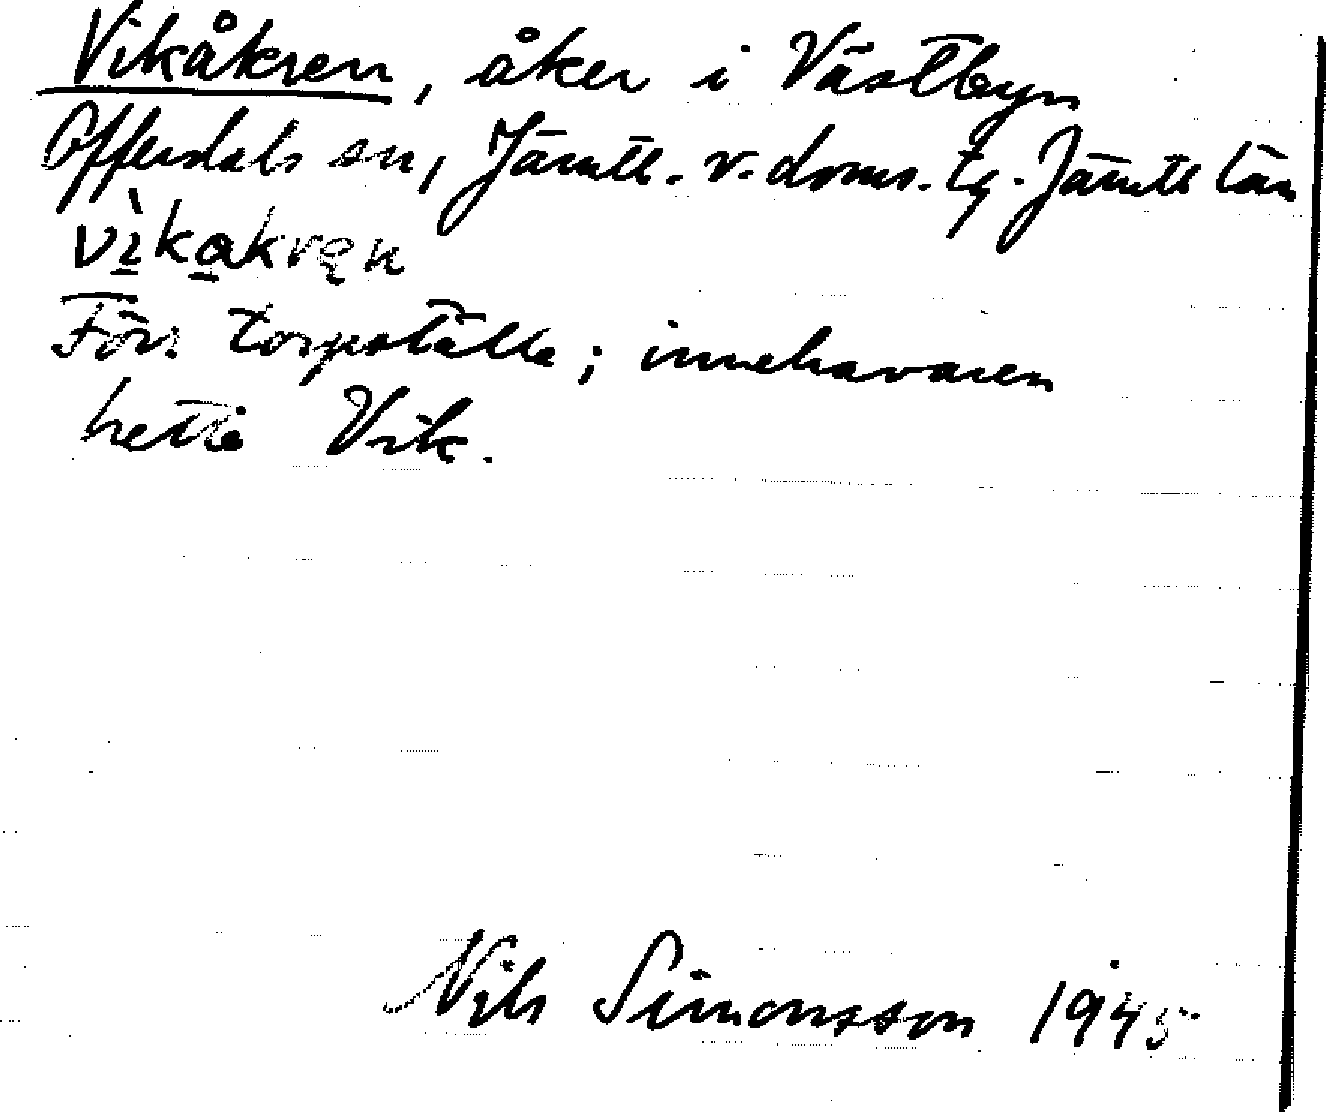 Vikåkren, åker i Västbyn
Offerdals sn, Jämtl. v. doms. tg. Jämtl län
vìkakren
Förr torpställe; innehavaren
hette Vik.
Nils Simonsson 1945